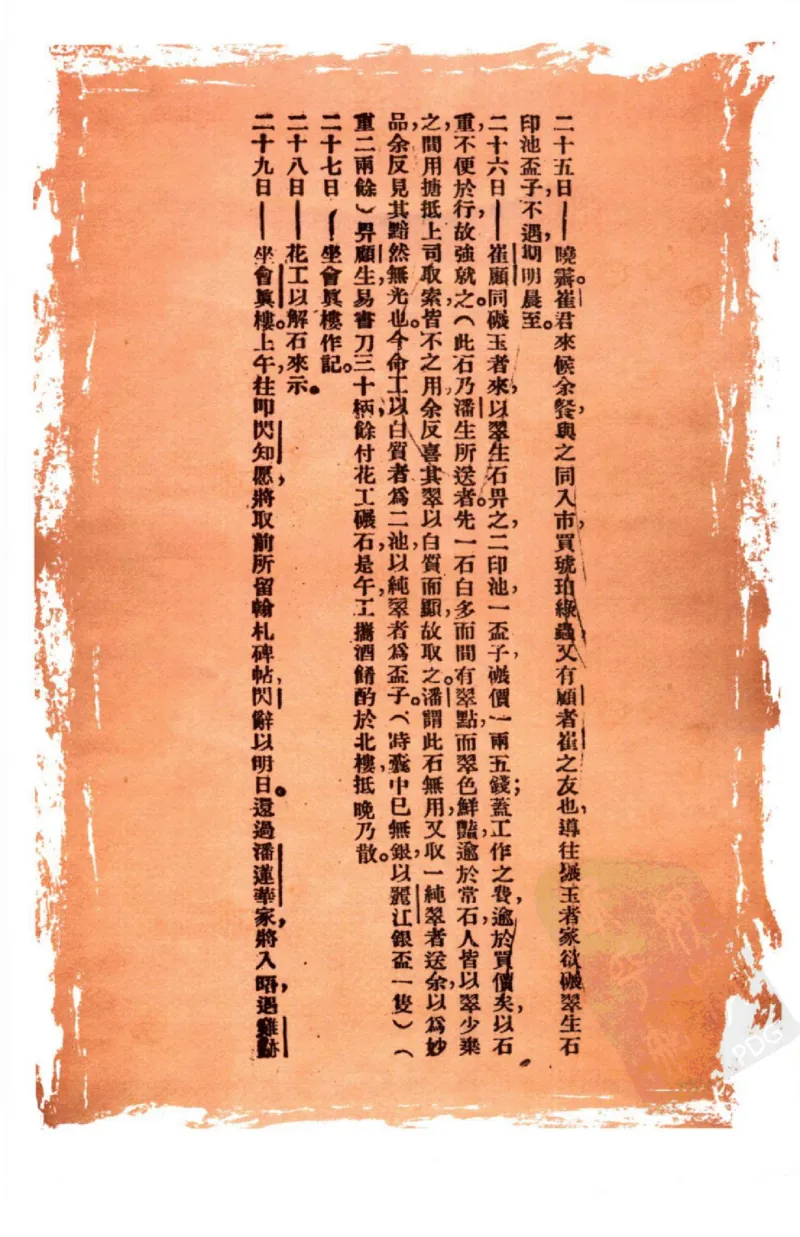 二十五日——曉霽。崔君來候余餐，與之同入市，買琥珀綠蟲。又有顧者，崔之友也，導往碾玉者家，欲碾翠生石
印池盃子，不遇，期明晨至。
二十六日——崔顧同碾玉者來，以翠生石畀之。二印池，一盃子，碾價一兩五錢；蓋工作之費逾於買價矣，以石
重不便於行，故強就之。（此石乃潘生所送者。先一石白多而間有翠點，而翠色鮮豔，逾於常石。人皆以翠少棄
之，間用搪抵上司取索，皆不之用。余反喜其翠以白質而顯，故取之。潘謂此石無用，又取一純翠者送余，以為妙
品，余反見其黯然無光也。今命工以白質者為二池，以純翠者為盃子。（時囊中已無銀，以麗江銀盃一隻）（
重二兩餘）畀顧生易書刀三十柄，餘付花工碾石。是午，工攜酒餚酌於北樓，抵晚乃散。
二十七日——坐會眞樓作記。
二十八日——花工以解石來示。
二十九日——坐會眞樓。上午，往叩閃知愿，將取前所留翰札碑帖，閃辭以明日。還過潘蓮華家，將入晤，遇雞